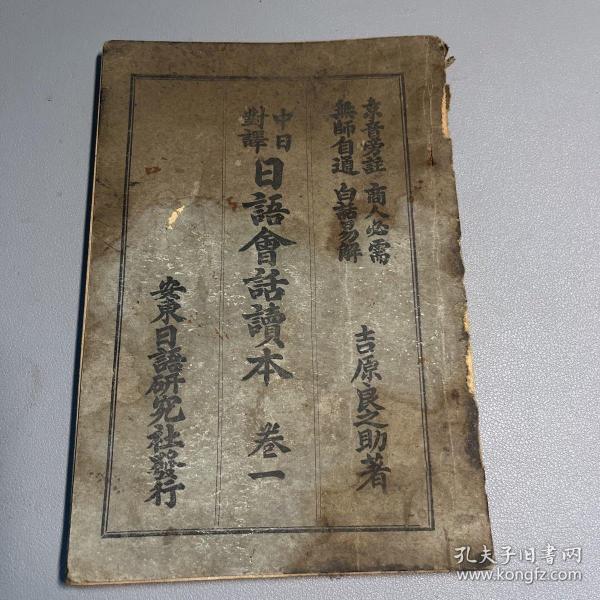 京音旁註 商人必需
無師自通 白話易解
吉原良之助著
中日
對譯
日語會話讀本 卷一
安東日語研究社發行
孔夫子旧书网
www.kongfz.com